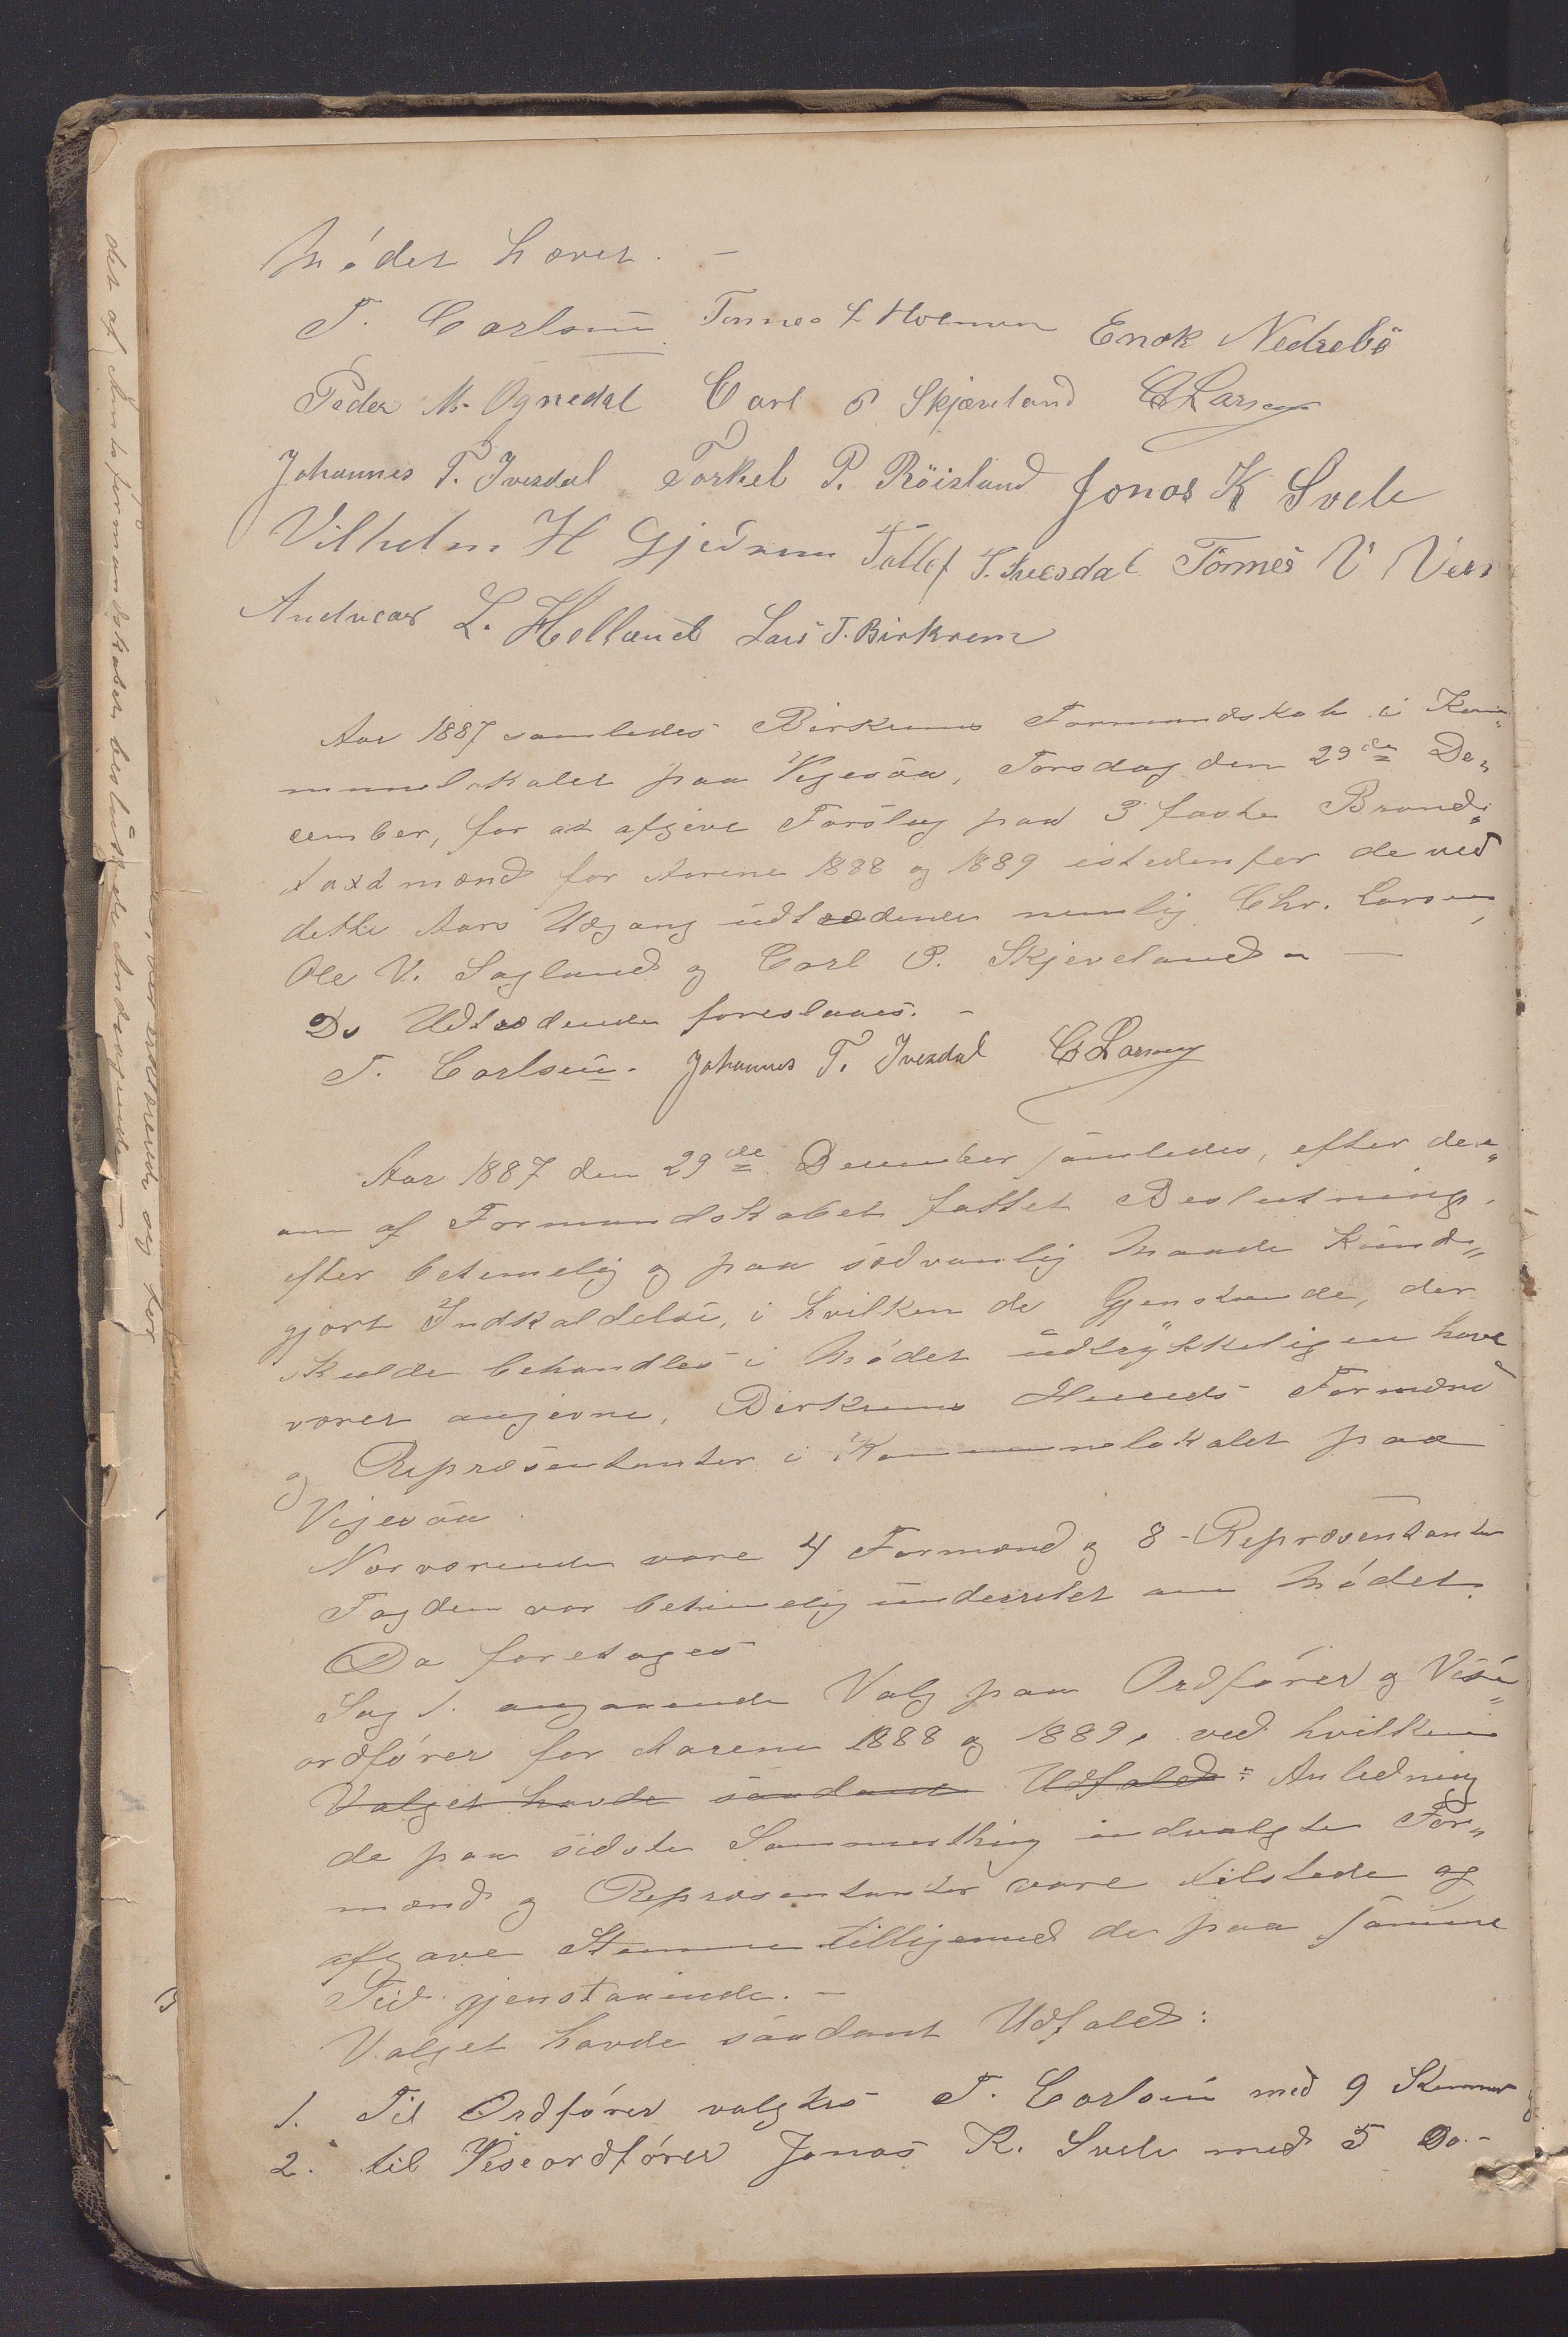 Mödet hævet. –
T. Carlsen Tönnes L Holmen Enok Nedrebö
Peder M. Ognedal Carl P Skjæveland C Larsen
Johannes T. Ivesdal Torkel P. Röisland Jonas K Svele
Vilhelm H Gjedrem Tollef S. Ivesdal Tönnes V
Andreas L. Helland Lars T. Birkrem
Aar 1887 samledes Birkrems Formandskab i Kom„
munelokalet paa Vigesaa, Torsdag den 29de De„
cember, for at afgive Forslag paa 3 faste Brand„
taxtmænd for Aarene 1888 og 1889 istedenfor de ved
dette Aars Udgang udtrædende nemlig Chr. Larsen,
Ole V. Sagland og Carl P. Skjeveland –
De Udtrædende foreslaaes. –
T. Carlsen. Johannes T. Ivesdal C Larsen
Aar 1887 den 29de December samledes, efter der„
om af Formandskabet fattet Beslutning,
efter betimelig og paa sædvanlig Maade kund„
gjort Indkaldelse, i hvilken de Gjenstande, der
skulde behandles i Mödet udtrykkeligen have
været angivne, Birkrems Herreds Formænd
og Repræsentanter i Kommunelokalet paa
Vigesaa.
Nærværende vare 4 Formænd og 8 Repræsentanter
Fogden var betimelig underrettet om Mödet.
Da foretages
Sag 1. angaaende Valg paa Ordförer og Vise„
ordförer for Aarene 1888 og 1889, ved hvilken
Valget havde saadant Udfald: Anledning
de paa sidste Sommerthing indvalgte For„
mænd og Repræsentanter vare tilstede og
afgave Stemme tilligemed de paa samme
Tid gjenstaaende. –
Valget havde saadant Udfald:
1. Til Ordförer valgtes T. Carlsen med 9 Stemmer
2. til Viseordförer Jonas K. Svele med 5 Do. –
det af Amtsformandskabet besluttede Andragende –